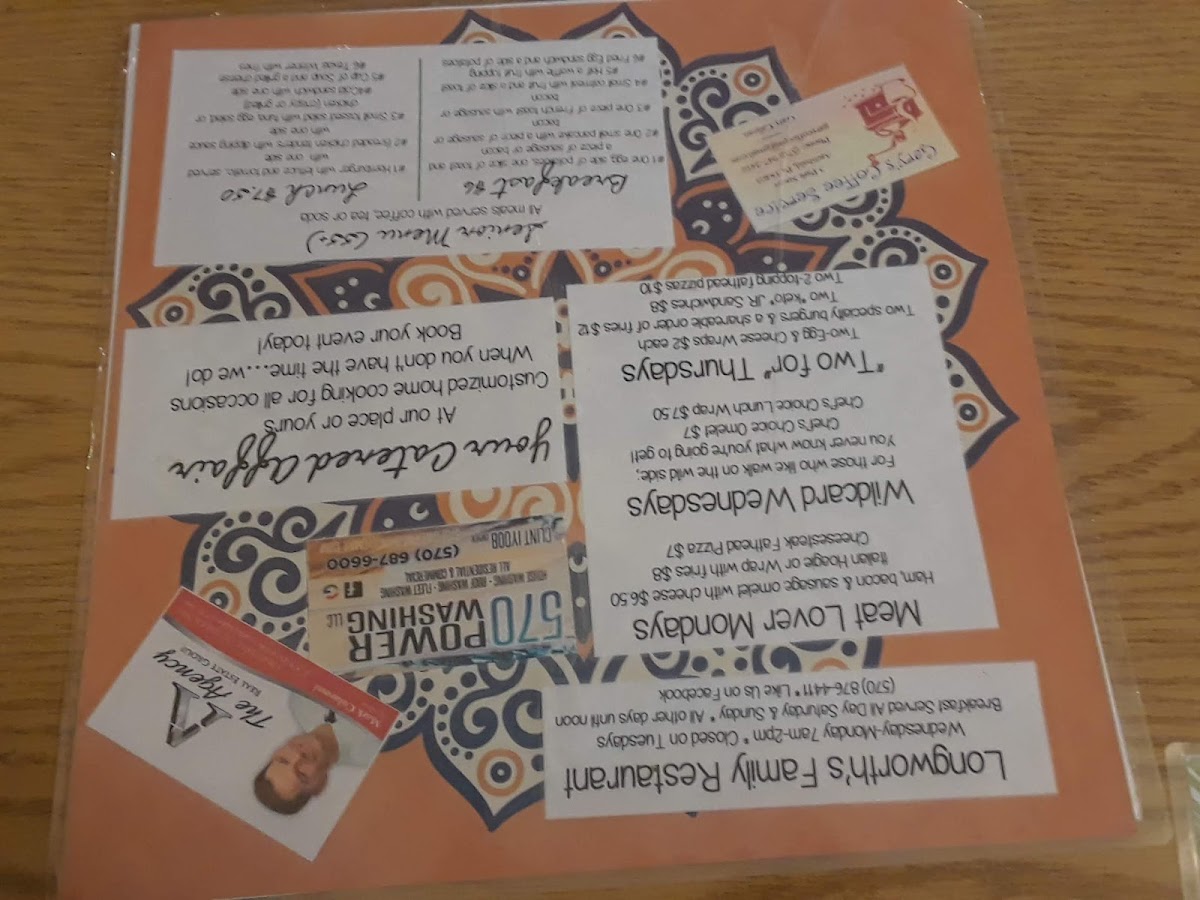 Longworth's Family Restaurant
Wednesday-Monday 7am-2pm * Closed on Tuesdays
Breakfast Served All Day Saturday & Sunday * All other days until noon
(570) 876-4411 * Like Us on Facebook
The Agency
REAL ESTATE GROUP
Meat Lover Mondays
Ham, bacon & sausage omelet with cheese $6.50
Italian Hoagie or Wrap with fries $8
Cheesesteak Fathead Pizza $7
Wildcard Wednesdays
For those who like walk on the wild side;
You never know what you're going to get!
Chef's Choice Omelet $7
Chef's Choice Lunch Wrap $7.50
"Two for" Thursdays
Two-Egg & Cheese Wraps $2 each
Two specialty burgers & a shareable order of fries $12
Two "keto" JR. Sandwiches $8
Two 2-topping fathead pizzas $10
570 POWER
WASHING LLC
HOUSE WASHING - ROOF WASHING - FLEET WASHING
ALL RESIDENTIAL & COMMERCIAL
(570) 687-6600
CLINT IYOOB
Your Catered Affair
At our place or your's
Customized home cooking for all occasions
When you don't have the time....we do!
Book your event today!
Gary's Coffee Service
Senior Menu (55+)
All meals served with coffee, tea or soda
Breakfast $6
#1 One egg, side of potatoes, one slice of toast and
a piece of sausage or bacon
#2 One small pancake with a piece of sausage or
bacon
#3 One piece of French toast with sausage or
bacon
#4 Small oatmeal with fruit and a slice of toast
#5 Half a waffle with fruit topping
#6 Fried Egg sandwich and side of potatoes
Lunch $7.50
#1 Hamburger with lettuce and tomato, served
with one side
#2 Breaded chicken tenders with dipping sauce
with one side
#3 Small tossed salad with tuna, egg salad, or
chicken (crispy or grilled)
#4 Cold sandwich with one side
#5 Cup of Soup and a grilled cheese
#6 Texas Wiener with fries